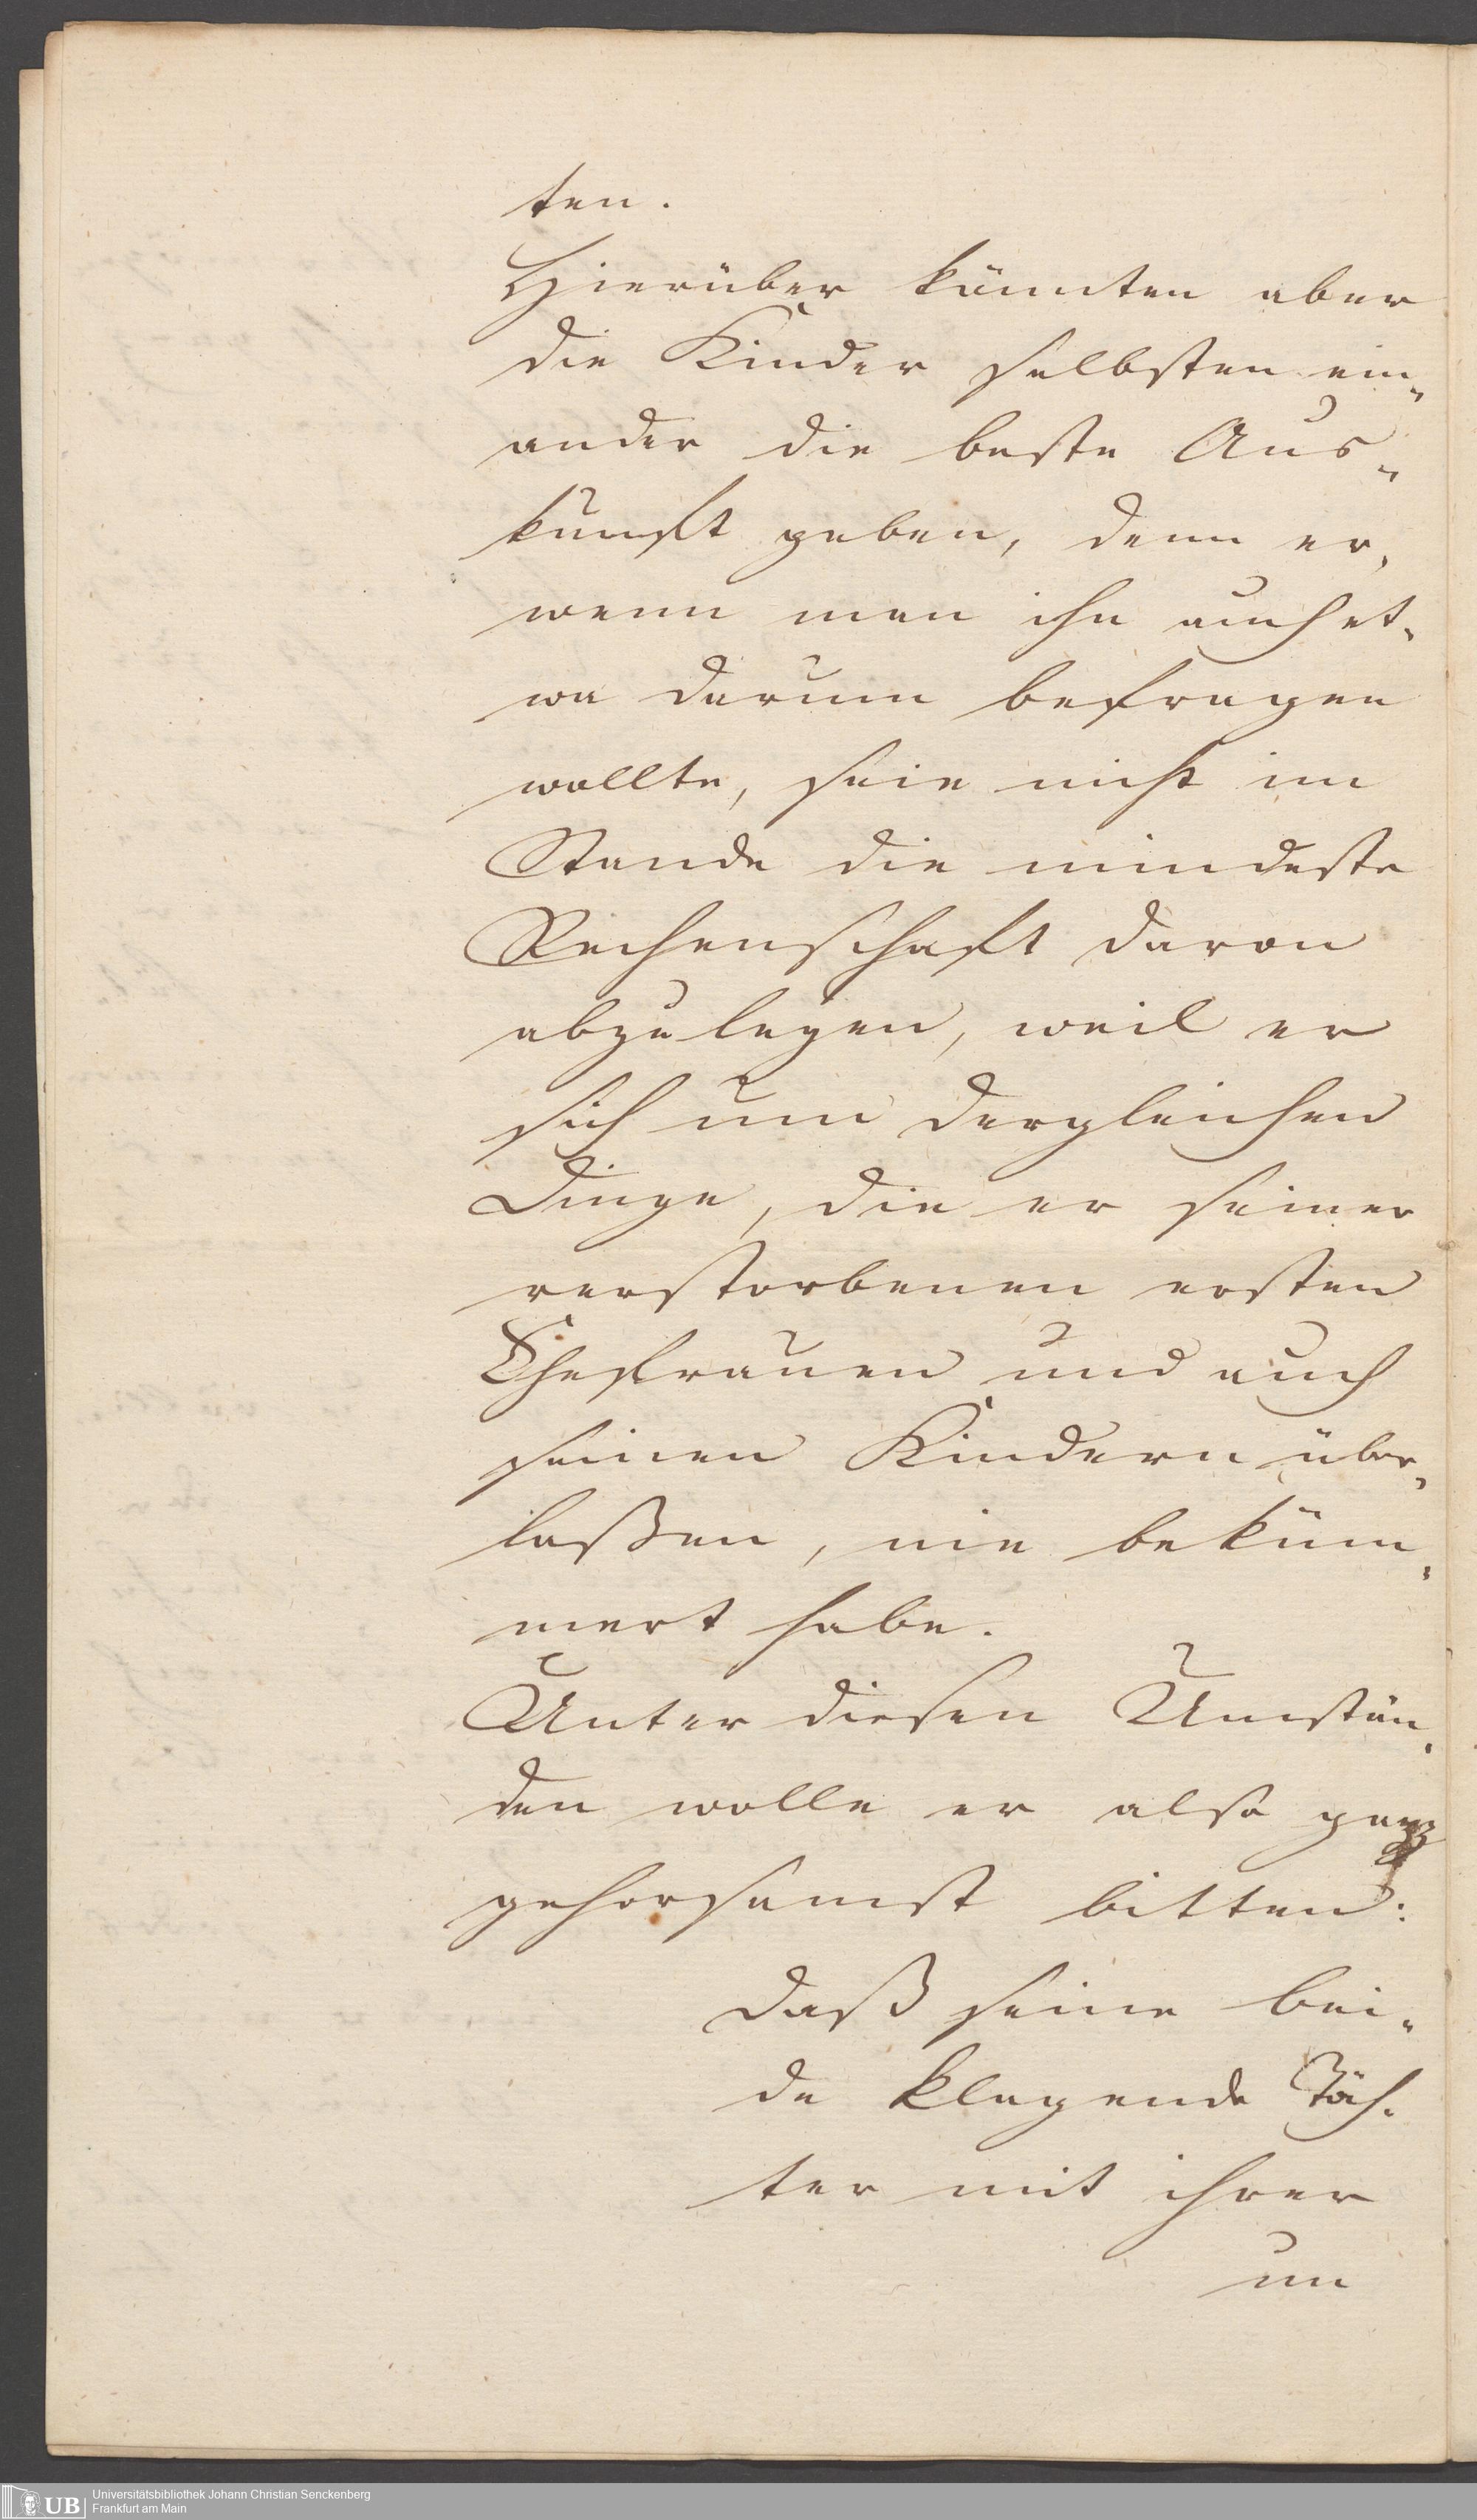 ten.
Hierüber könnten aber
die Kinder selbsten ein„
ander die beste Aus„
kunft geben, denn er,
wenn man ihn auch et„
wa darum befragen
wollte, seie nicht im
Stande die mindeste
Rechenschaft davon
abzulegen, weil er
sich um dergleichen
Dinge, die er seiner
verstorbenen ersten
Ehefrauen und auch
seinen Kindern über„
laßen, nie beküm„
mert habe.
Unter diesen Umstän„
den wolle er also ganz
gehorsamst bitten:
daß seine bei„
de klagende Töch„
ter mit ihrer
un
UB
Universitätsbibliothek Johann Christian Senckenberg
Frankfurt am Main